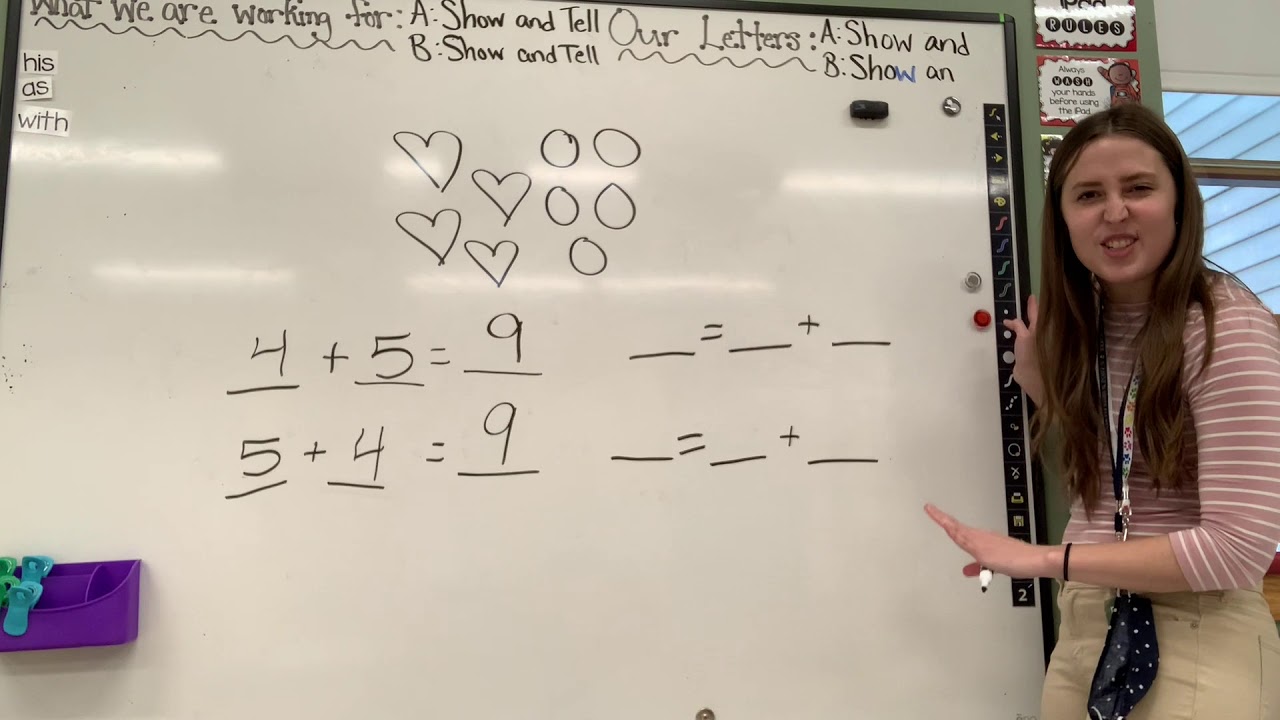 What we are working for: A: Show and Tell
B: Show and Tell
Our Letters: A: Show and
B: Show an
his
as
with
4 + 5 = 9
5 + 4 = 9
__ = __ + __
__ = __ + __
iPad
RULES
Always
WASH
your hands
before using
the iPad
2